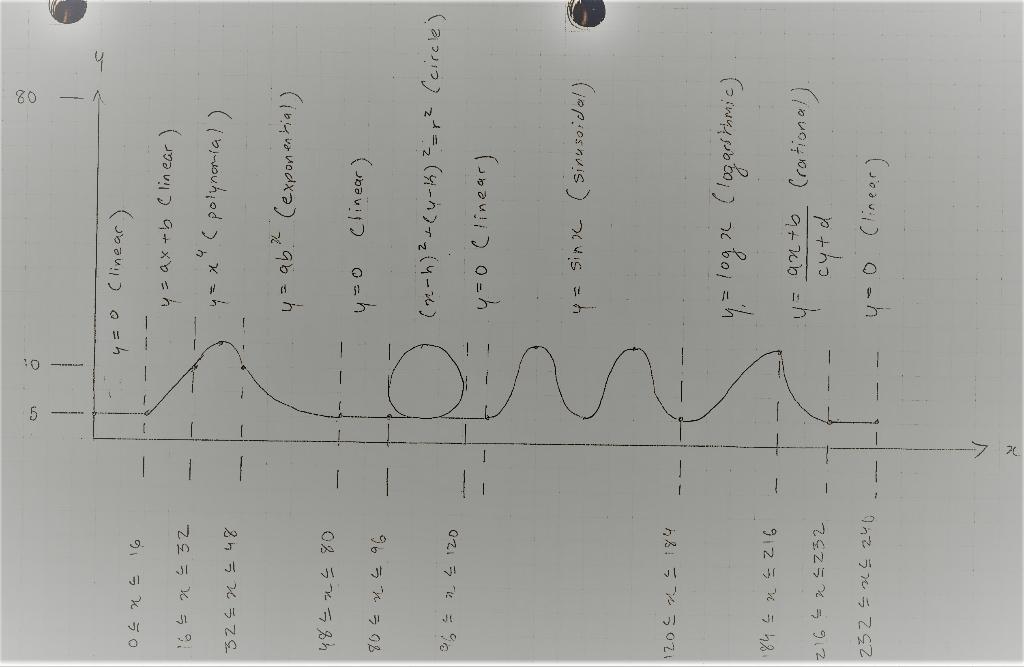 y
80
10
5
x
y = 0 (linear)
y = ax + b (linear)
y = x⁴ (polynomial)
y = ab^x (exponential)
y = 0 (linear)
(x-h)² + (y-k)² = r² (circle)
y = 0 (linear)
y = sin x (sinusoidal)
y = log x (logarithmic)
y = ax+b / cy+d (rational)
y = 0 (linear)
0 ≤ x ≤ 16
16 ≤ x ≤ 32
32 ≤ x ≤ 48
48 ≤ x ≤ 80
80 ≤ x ≤ 96
96 ≤ x ≤ 120
120 ≤ x ≤ 184
184 ≤ x ≤ 216
216 ≤ x ≤ 232
232 ≤ x ≤ 240